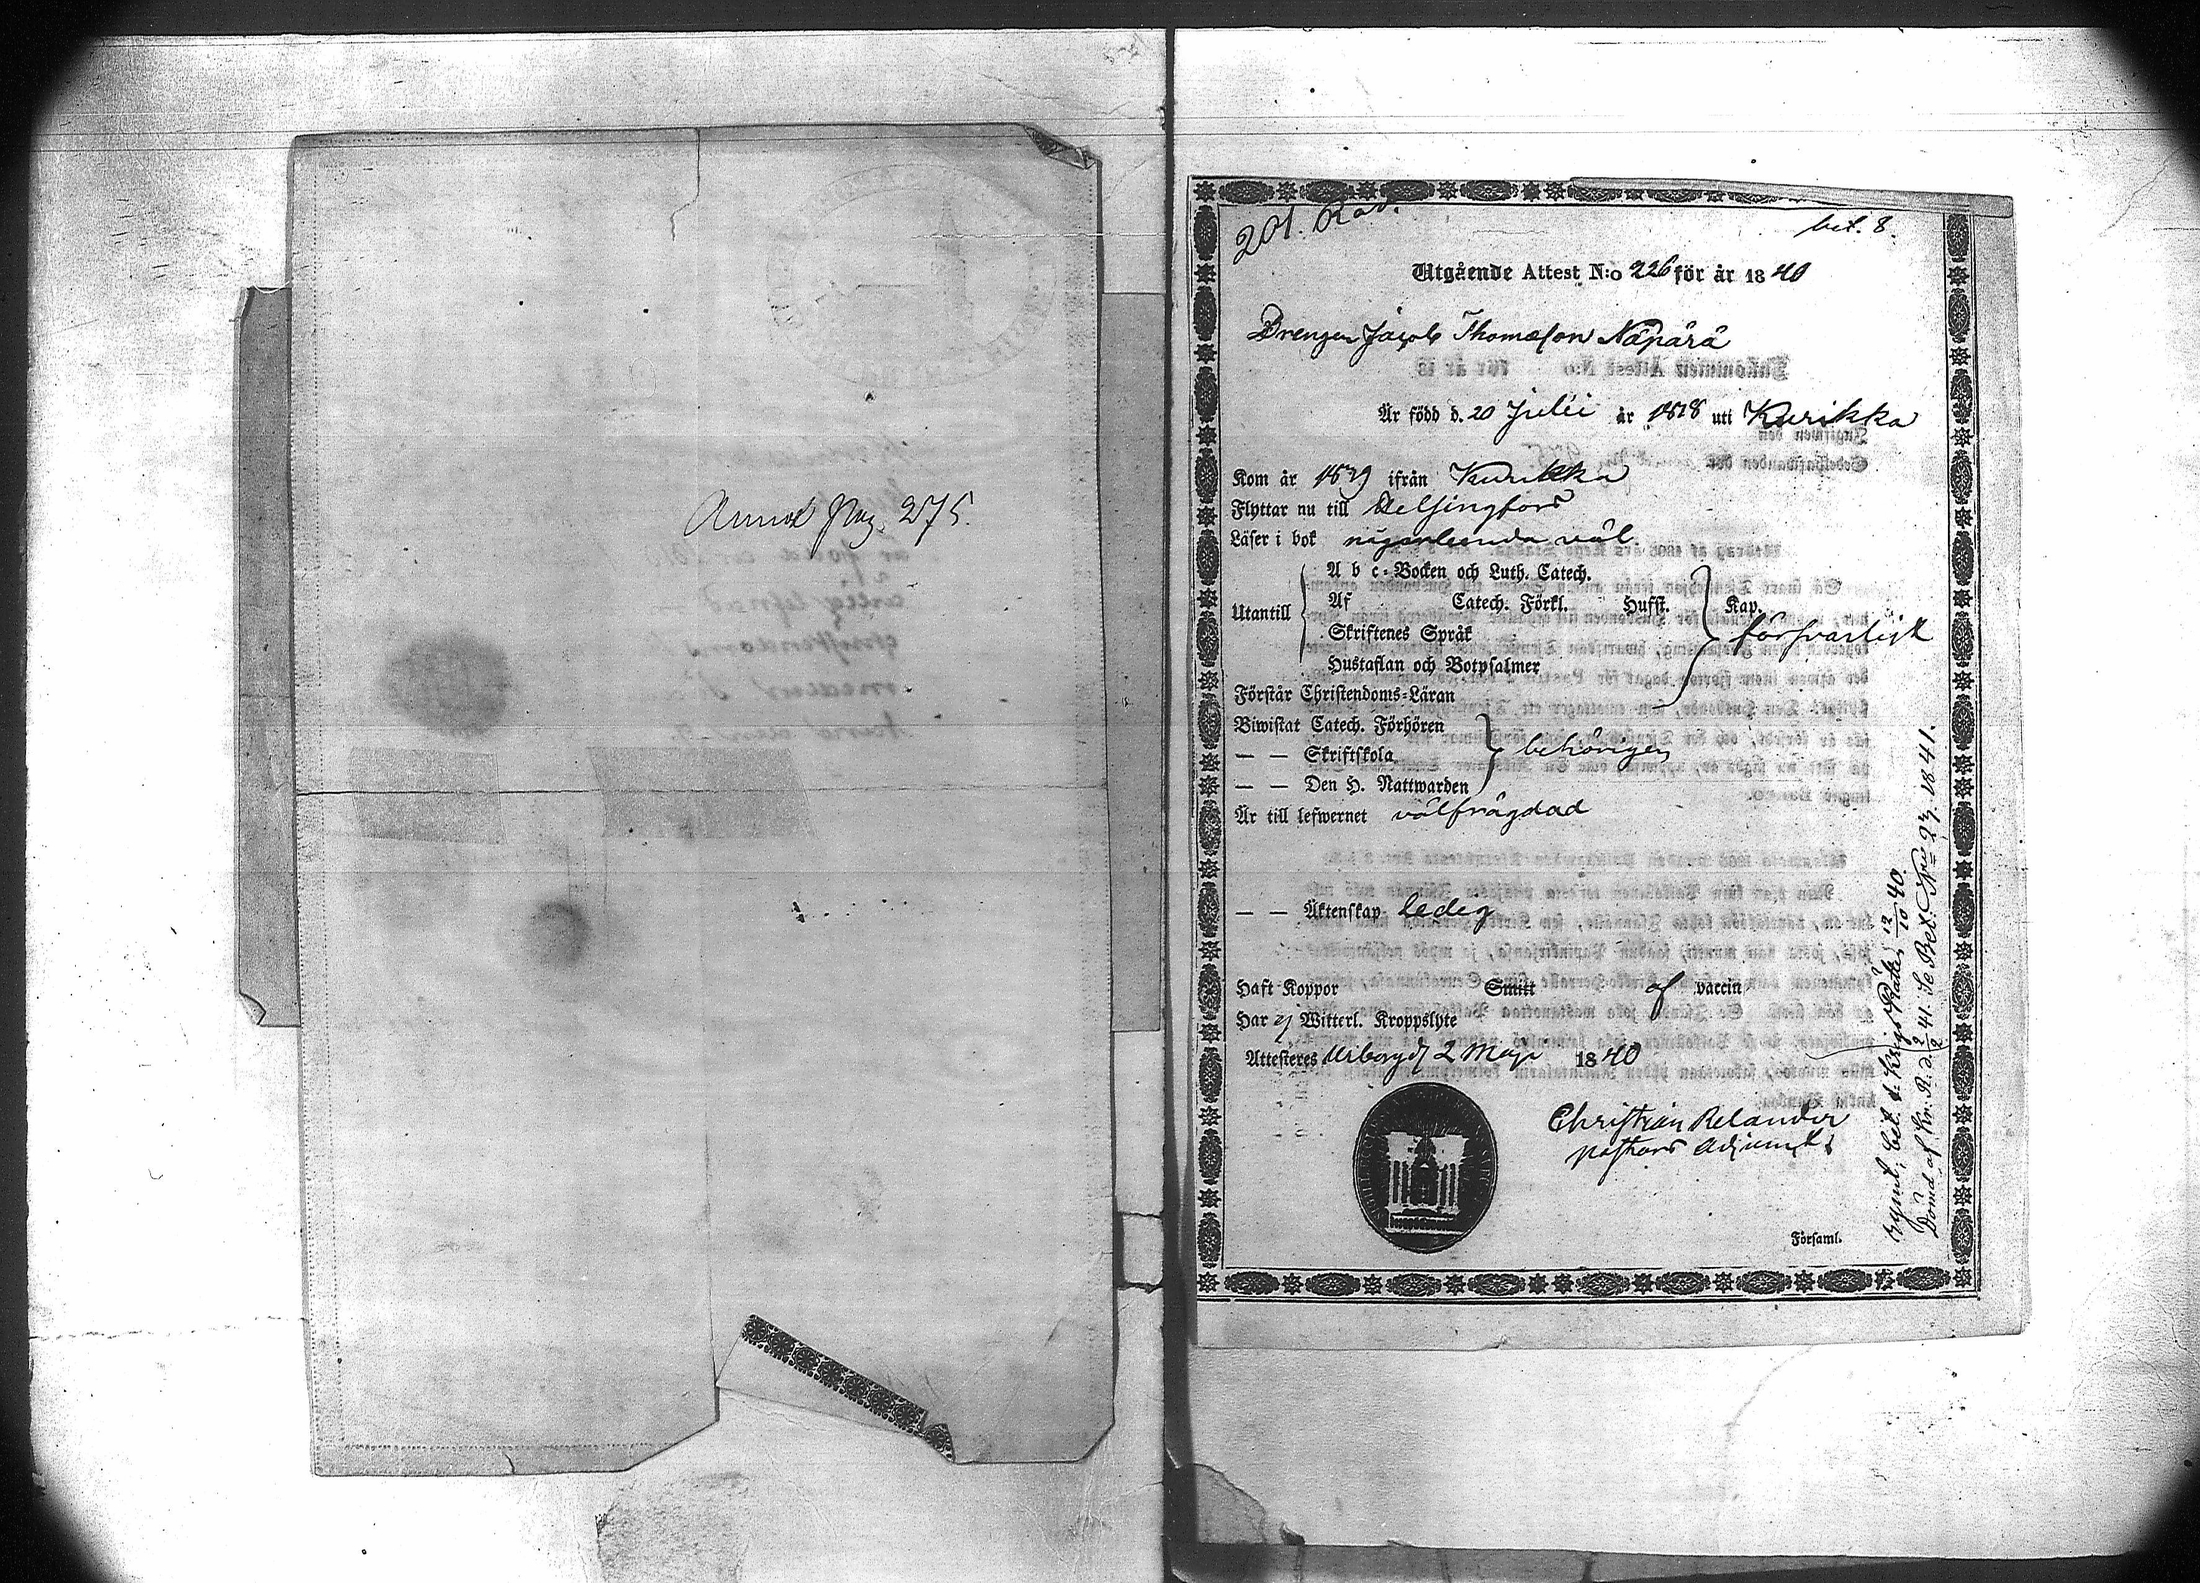 Annot pag. 275.
201. Rad.
bet. 8.
Utgående Attest N:o 226 för år 1840
Drengen Jacob Thomasson Näpärä
Är född d. 20 Julii år 1818 uti Kurikka
Kom år 1839 ifrån Kurikka
Flyttar nu till Helsingfors
Läser i bok någorlunda väl.
Utantill
A b c-Bocken och Luth. Catech.
Af Catech. Förkl. Hufst. Kap.
Skriftenes Språk
Hustaflan och Botpsalmer
försvarligt
Förstår Christendoms-Läran
Biwistat Catech. Förhören
— — Skriftskola
— — Den H. Nattwarden
behörigen
Är till lefwernet välfrägdad
— — Äktenskap ledig
Haft Koppor Smitt af vaccin
Har ej Witterl. Kroppslyte
Attesteras d 2 Maji 1840
Christian Relander
pastors adjunkt.
Församl.
bet. 12/10 40.
Dömd af Kr: R: d. 2/2 41. Se Bet. 27. 1841.